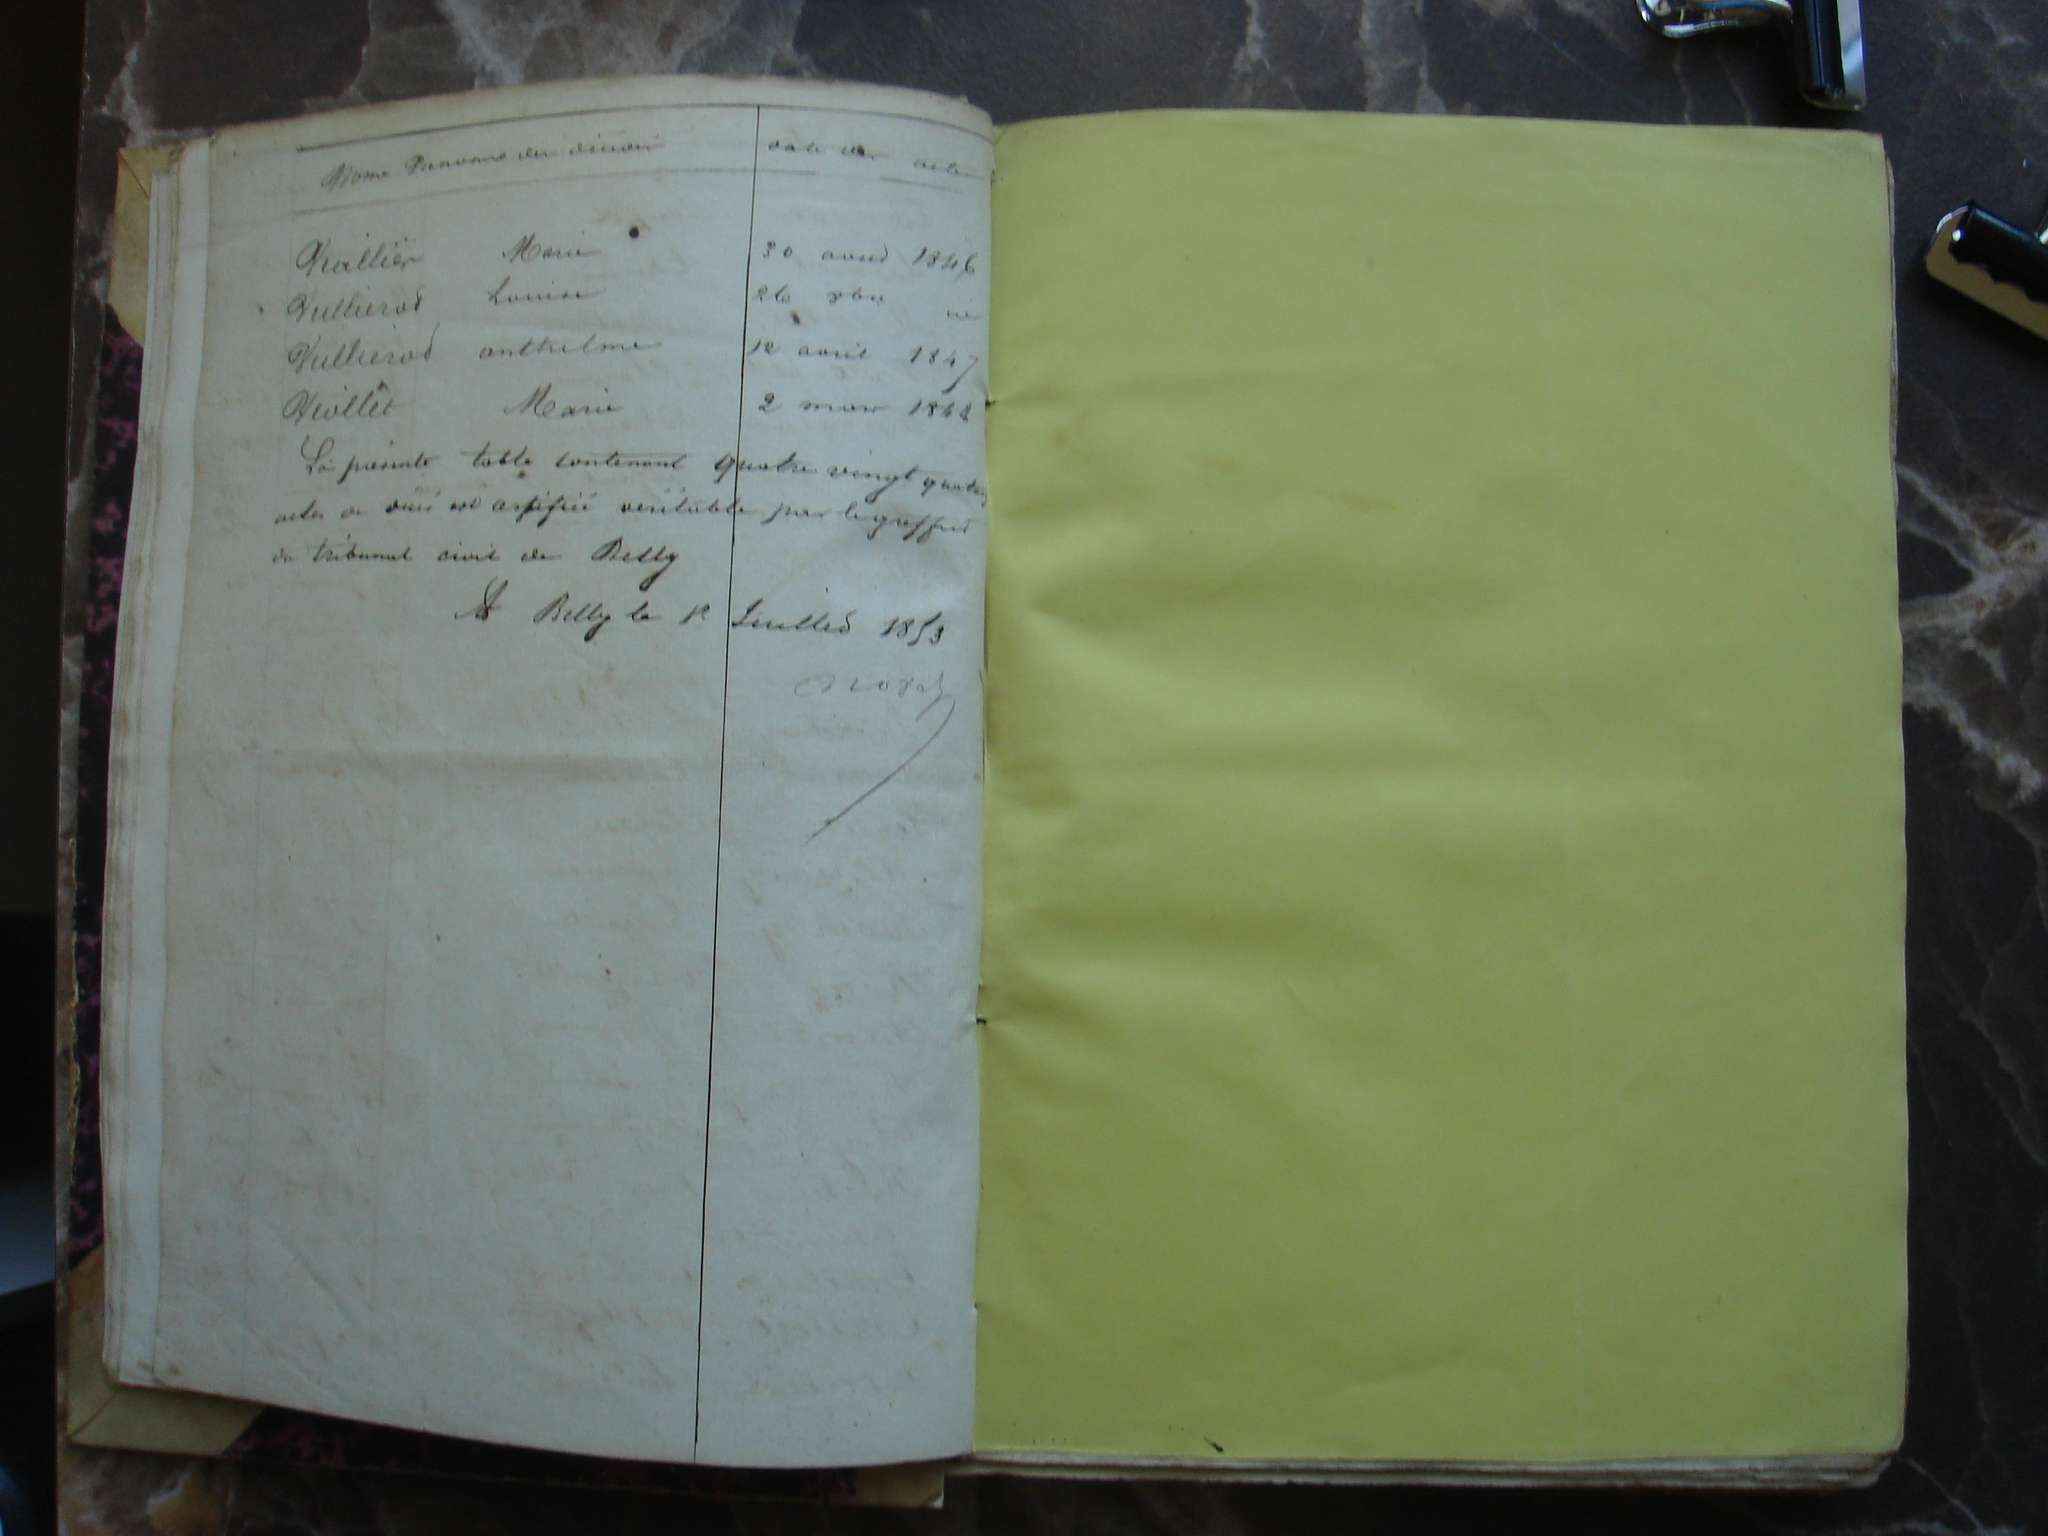 Noms Prenoms des décédés date des actes
Viallier Marie 30 aout 1846
Vullierod Louise 26 8bre id
Vullierod anthelme 12 avril 1847
Viollet Marie 2 mars 1842
La présente table contenant quatre vingt quatre
actes de décès est certifiée véritable par le greffier
du tribunal civil de Belley
A Belley le 12 Juillet 1853